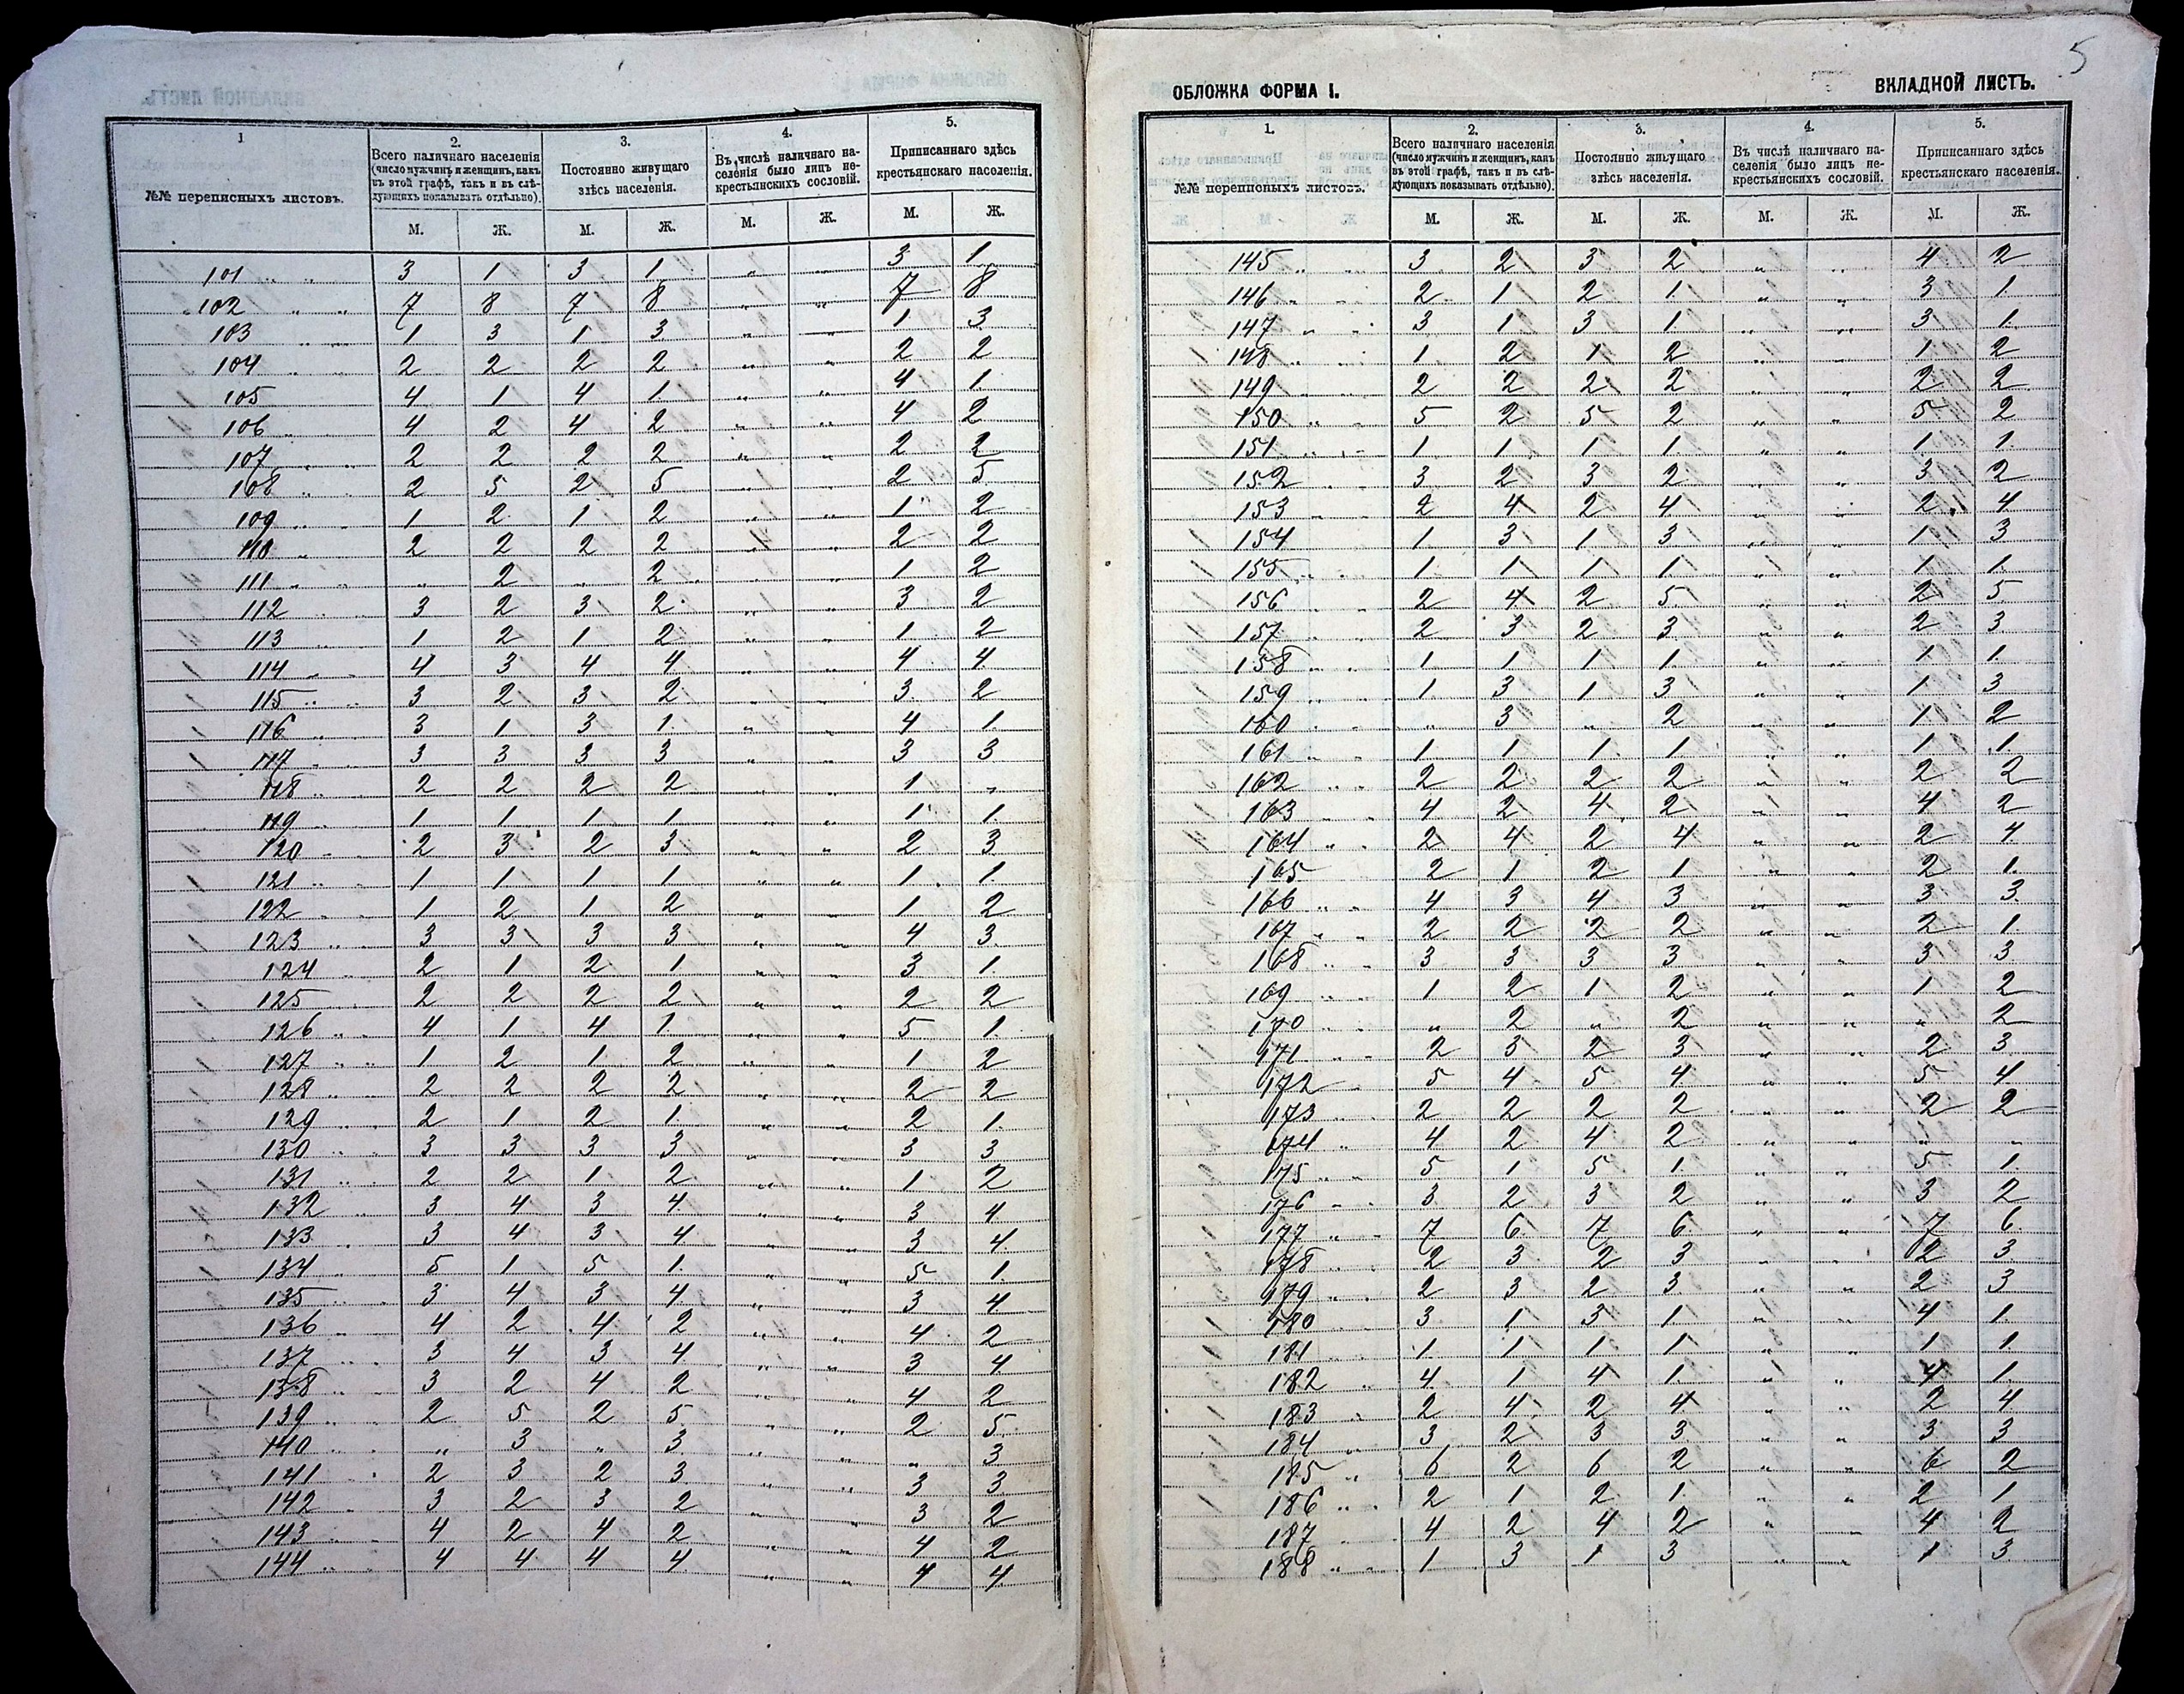 1
2.
3.
4.
5.
№№ переписныхъ листовъ.
Всего наличнаго населенія
(число мужчинъ и женщинъ, какъ
въ этой графѣ, такъ и въ слѣ-
дующихъ показывать отдѣльно).
Постоянно живущаго
здѣсь населенія.
Въ числѣ наличнаго на-
селенія было лицъ не-
крестьянскихъ сословій.
Приписаннаго здѣсь
крестьянскаго населенія.
М. Ж. М. Ж. М. Ж. М. Ж.
101 „ „ 3 1 3 1 „ „ 3 1
102 „ „ 7 8 7 8 „ „ 7 8
103 „ „ 1 3 1 3 „ „ 1 3
104 „ „ 2 2 2 2 „ „ 2 2
105 4 1 4 1 „ „ 4 1
106 „ 4 2 4 2 „ „ 4 2
107 „ „ 2 2 2 2 „ „ 2 2
108 „ „ 2 5 2 5 „ „ 2 5
109 „ „ 1 2 1 2 „ „ 1 2
110 „ 2 2 2 2 „ „ 2 2
111 „ „ „ 2 „ 2 „ „ 1 2
112 „ „ 3 2 3 2 „ „ 3 2
113 „ 1 2 1 2 „ „ 1 2
114 „ „ 4 3 4 4 „ „ 4 4
115 „ „ 3 2 3 2 „ „ 3 2
116 „ 3 1 3 1 „ „ 4 1
117 „ 3 3 3 3 „ „ 3 3
118 „ 2 2 2 2 „ „ 1 „
119 „ 1 1 1 1 „ „ 1 1
120 „ 2 3 2 3 „ „ 2 3
121 „ 1 1 1 1 „ „ 1 1
122 „ 1 2 1 2 „ „ 1 2
123 „ 3 3 3 3 „ „ 4 3
124 „ 2 1 2 1 „ „ 3 1
125 2 2 2 2 „ „ 2 2
126 „ „ 4 1 4 1 „ „ 5 1
127 „ „ 1 2 1 2 „ „ 1 2
128 „ 2 2 2 2 „ „ 2 2
129 „ 2 1 2 1 „ „ 2 1
130 „ 3 3 3 3 „ „ 3 3
131 „ 2 2 1 2 „ „ 1 2
132 „ 3 4 3 4 „ „ 3 4
133 „ 3 4 3 4 „ „ 3 4
134 „ 5 1 5 1 „ „ 5 1
135 „ 3 4 3 4 „ „ 3 4
136 „ 4 2 4 2 „ „ 4 2
137 „ 3 4 3 4 „ „ 3 4
138 „ 3 2 4 2 „ „ 4 2
139 „ 2 5 2 5 „ „ 2 5
140 „ „ 3 „ 3 „ „ „ 3
141 „ 2 3 2 3 „ „ 3 3
142 „ 3 2 3 2 „ „ 3 2
143 „ „ 4 2 4 2 „ „ 4 2
144 „ „ 4 4 4 4 „ „ 4 4
5
ОБЛОЖКА ФОРМА I.
ВКЛАДНОЙ ЛИСТЪ.
1.
2.
3.
4.
5.
№№ переписныхъ листовъ.
Всего наличнаго населенія
(число мужчинъ и женщинъ, какъ
въ этой графѣ, такъ и въ слѣ-
дующихъ показывать отдѣльно).
Постоянно живущаго
здѣсь населенія.
Въ числѣ наличнаго на-
селенія было лицъ не-
крестьянскихъ сословій.
Приписаннаго здѣсь
крестьянскаго населенія.
М. Ж. М. Ж. М. Ж. М. Ж.
145 „ „ 3 2 3 2 „ „ 4 2
146 „ „ 2 1 2 1 „ „ 3 1
147 „ „ 3 1 3 1 „ „ 3 1
148 „ 1 2 1 2 „ „ 1 2
149 „ „ 2 2 2 2 „ „ 2 2
150 „ „ 5 2 5 2 „ „ 5 2
151 „ „ 1 1 1 1 „ „ 1 1
152 „ „ 3 2 3 2 „ „ 3 2
153 „ „ 2 4 2 4 „ „ 2 4
154 „ „ 1 3 1 3 „ „ 1 3
155 „ „ 1 1 1 1 „ „ 1 1
156 „ „ 2 4 2 5 „ „ 2 5
157 „ „ 2 3 2 3 „ „ 2 3
158 „ „ 1 1 1 1 „ „ 1 1
159 „ „ 1 3 1 3 „ „ 1 3
160 „ „ „ 3 „ 2 „ „ 1 2
161 „ „ 1 1 1 1 „ „ 1 1
162 „ „ 2 2 2 2 „ „ 2 2
163 „ „ 4 2 4 2 „ „ 4 2
164 „ „ 2 4 2 4 „ „ 2 4
165 „ „ 2 1 2 1 „ „ 2 1
166 „ „ 4 3 4 3 „ „ 3 3
167 „ „ 2 2 2 2 „ „ 2 1
168 „ „ 3 3 3 3 „ „ 3 3
169 „ „ 1 2 1 2 „ „ 1 2
170 „ „ „ 2 „ 2 „ „ „ 2
171 „ „ 2 3 2 3 „ „ 2 3
172 „ 5 4 5 4 „ „ 5 4
173 „ „ 2 2 2 2 „ „ 2 2
174 „ 4 2 4 2 „ „ „ „
175 „ „ 5 1 5 1 „ „ 5 1
176 „ „ 3 2 3 2 „ „ 3 2
177 „ „ 7 6 7 6 „ „ 7 6
178 „ „ 2 3 2 3 „ „ 2 3
179 „ „ 2 3 2 3 „ „ 2 3
180 „ 3 1 3 1 „ „ 4 1
181 „ 1 1 1 1 „ „ 1 1
182 „ 4 1 4 1 „ „ 4 1
183 „ 2 4 2 4 „ „ 2 4
184 „ 3 2 3 3 „ „ 3 3
185 „ 6 2 6 2 „ „ 6 2
186 „ „ 2 1 2 1 „ „ 2 1
187 4 2 4 2 „ „ 4 2
188 „ „ 1 3 1 3 „ „ 1 3